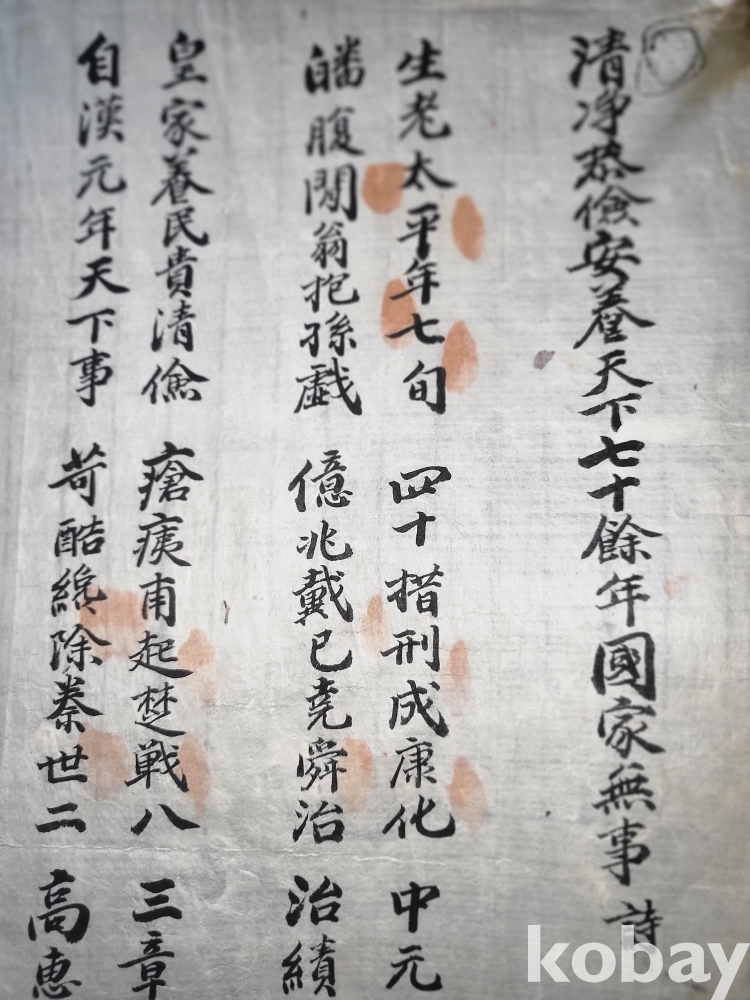 清淨恭儉安養天下七十餘年國家無事 詩
生老太平年七旬 四十措刑成康化 中元
皤腹閒翁抱孫戱 億兆戴已堯舜治 治績
皇家養民貴清儉 瘡痍甫起楚戰八 三章
自漢元年天下事 苛酷纔除秦世二 高惠
kobay